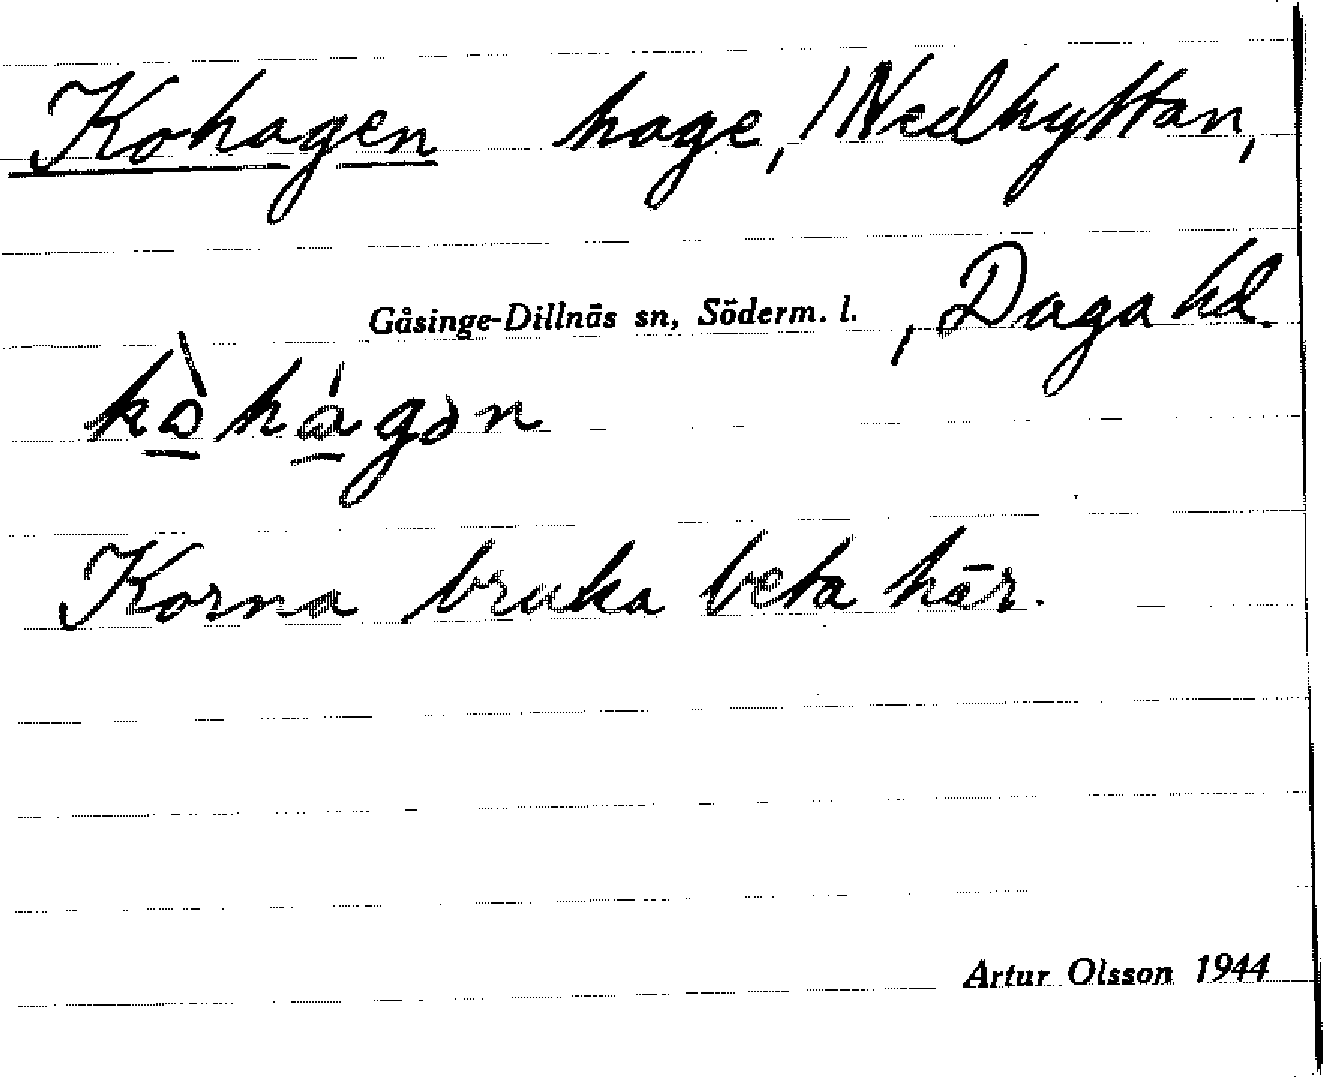 Kohagen hage, / Nedhyttan,
Gåsinge-Dillnäs sn, Söderm. l. , Daga hd.
kòhágən
Korna bruka beta här.
Artur Olsson 1944